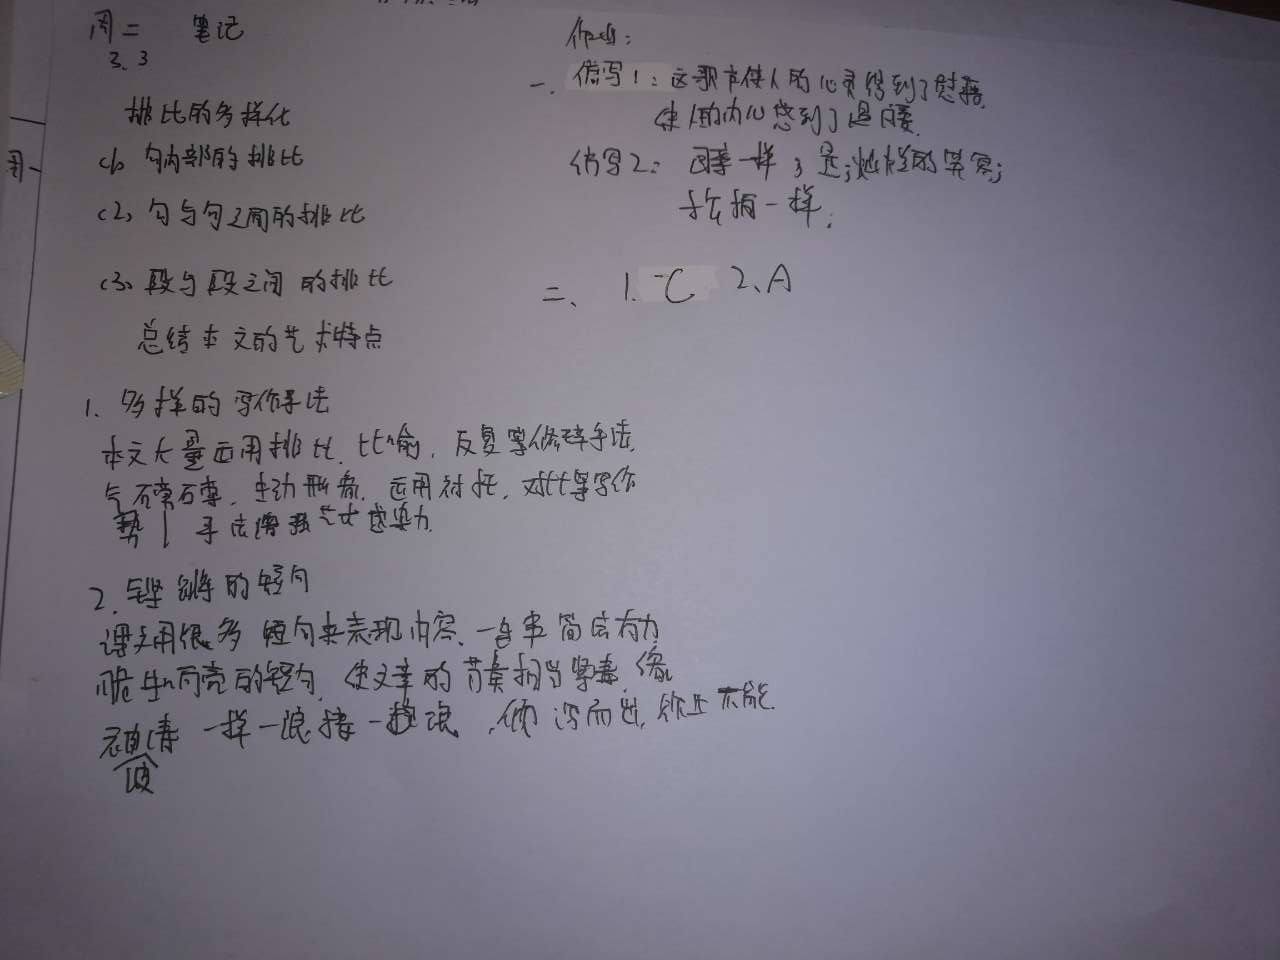 周二 笔记
3.3
排比的多样化
(1) 句内部的排比
(2) 句与句之间的排比
(3) 段与段之间的排比
总结本文的艺术特点
1. 多样的写作手法
本文大量运用排比、比喻、反复等修辞手法,
气势磅礴,生动形象,运用衬托,对比等写作
手法增强艺术感染力.
2. 铿锵的短句
课文用很多短句来表现内容,简洁有力
脆生响亮的短句,使文章的节奏相当紧凑,像
波 一样一浪接一浪,倾泻而出,不能
周一
作业:
一、仿写1:这歌声使人的心灵得到了慰藉,
使人的内心感到了温暖.
仿写2: 一样,是;灿烂的笑容;
一样.
二、 1. C 2、A